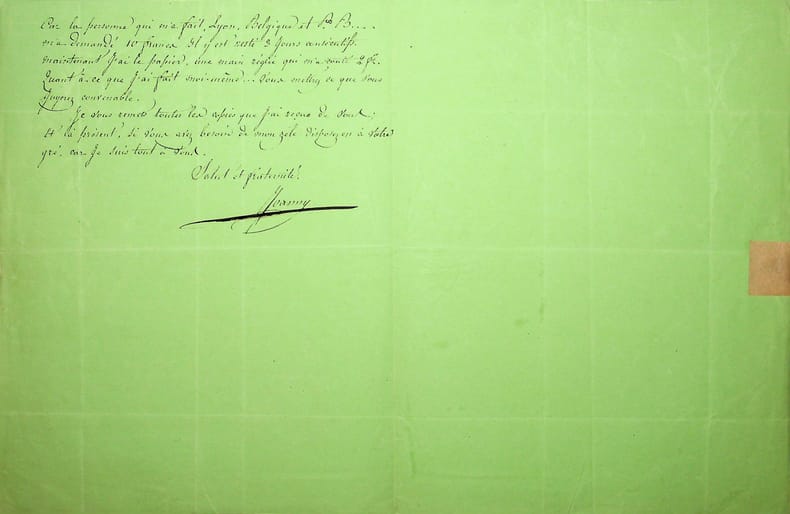 Car la personne qui m'a fait, Lyon, Belgique et P. B....
m'a demandé 10 francs il y est resté 3 Jours consécutifs.
maintenant J'ai le papier, une main réglée qui m'a coûté 2 fr.
Quant à ce que J'ai fait moi-même... Vous mettrez ce que vous
Jugerez convenable.
Je vous remets toutes les copies que J'ai reçues de vous;
Et là présent, si vous avez besoin de mon zèle disposez en à votre
gré, car Je suis tout à vous.
Salut et fraternité.
Joanny